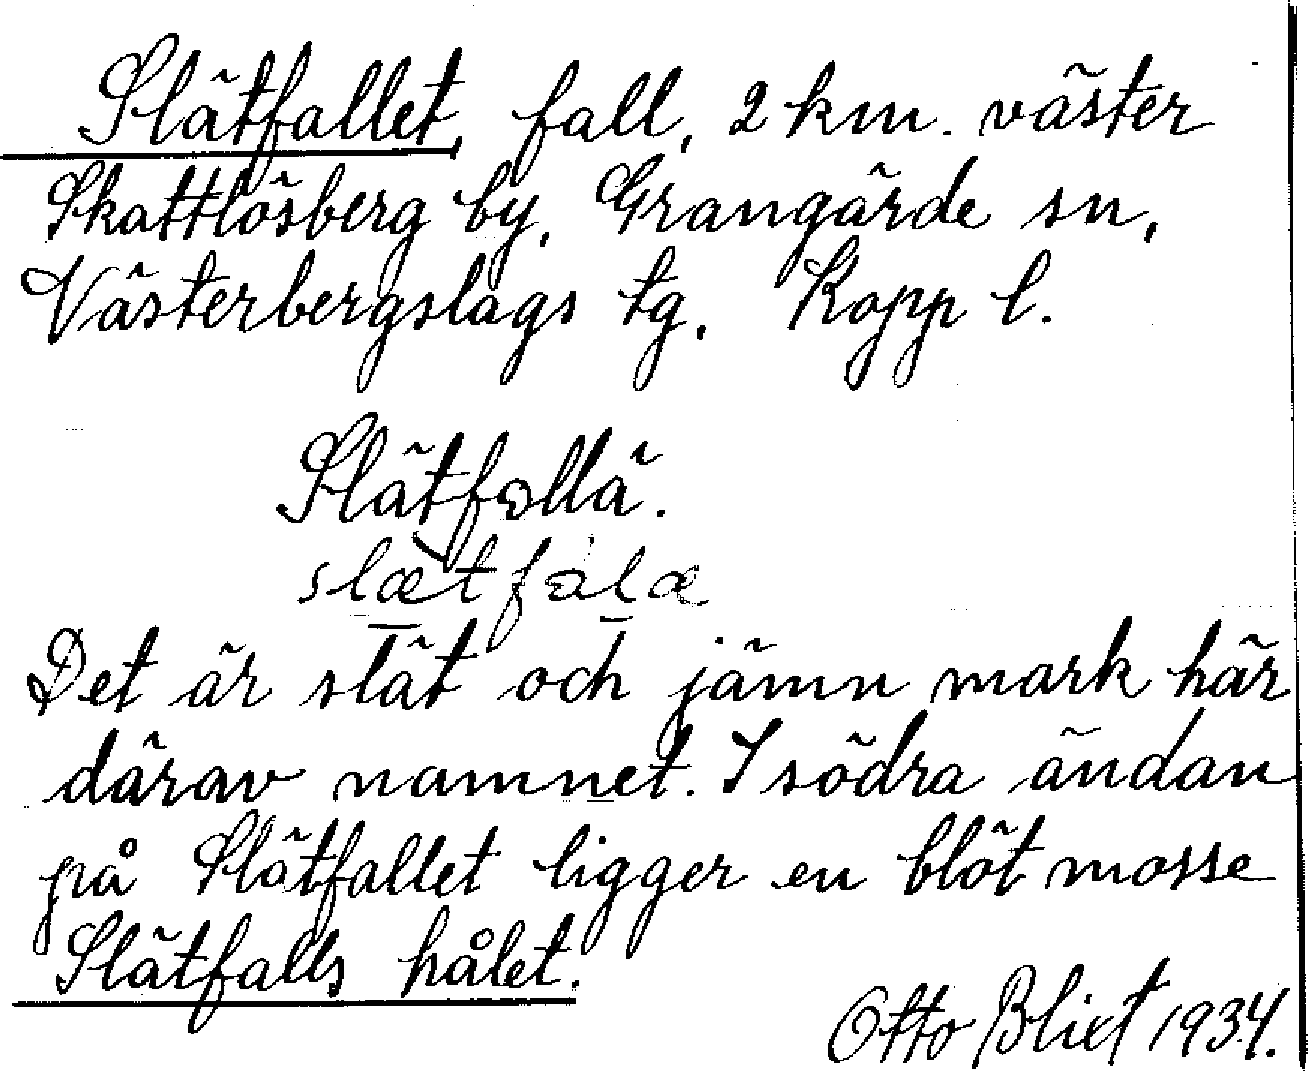 Slätfallet, fall, 2 km. väster
Skattlösberg by, Grangärde sn,
Västerbergslags tg. Kopp l.
Slätfɷllä.
slætfɷlæ
Det är slät och jämn mark här
därav namnet. I södra ändan
på Slätfallet ligger en blöt mosse
Slätfalls hålet.
Otto Blixt 1934.